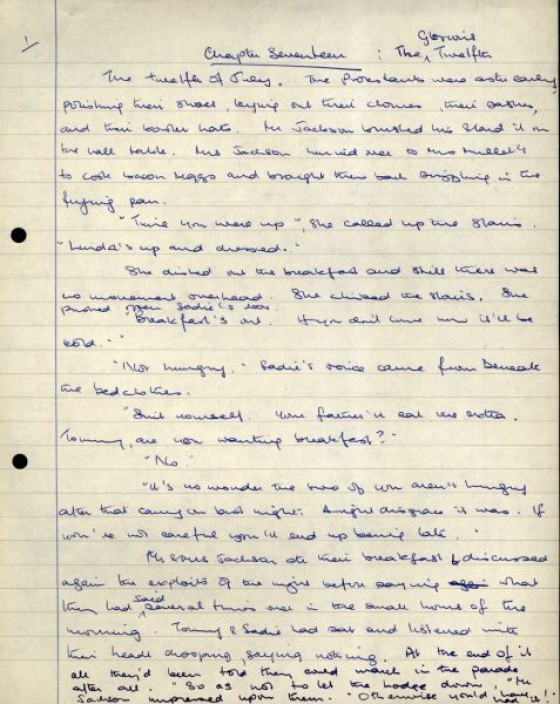 1/
Glorious
Chapter Seventeen : The Twelfth
The twelfth of July. The Protestants were astir early,
polishing their shoes, laying out their clothes, their sashes,
and their bowler hats. Mr Jackson brushed his & laid it on
the hall table. Mrs Jackson hurried over to Mrs Mullet's
to cook bacon & eggs and brought them back sizzling in the
frying pan.
"Time you were up", she called up the stairs.
"Linda's up and dressed."
She dished out the breakfast and still there was
no movement overhead. She climbed the stairs. She
pushed open Sadie's door.
"Breakfast's out. If you don't come now it'll be
cold."
"Not hungry." Sadie's voice came from beneath
the bedclothes.
"Suit yourself. Your father'll eat the extra.
Tommy, are you wanting breakfast?"
"No."
"It's no wonder the two of you aren't hungry
after that carry on last night. A right disgrace it was. If
you're not careful you'll end up being late."
Mr & Mrs Jackson ate their breakfast & discussed
again the exploits of the night before saying again what
said
they had several times over in the small hours of the
morning. Tommy & Sadie had sat and listened with
their heads drooping, saying nothing. At the end of it
all they'd been told they could march in the parade
after all. "So as not to let the Lodge down," Mr
Jackson impressed upon them. "Otherwise you'd have
had it!"